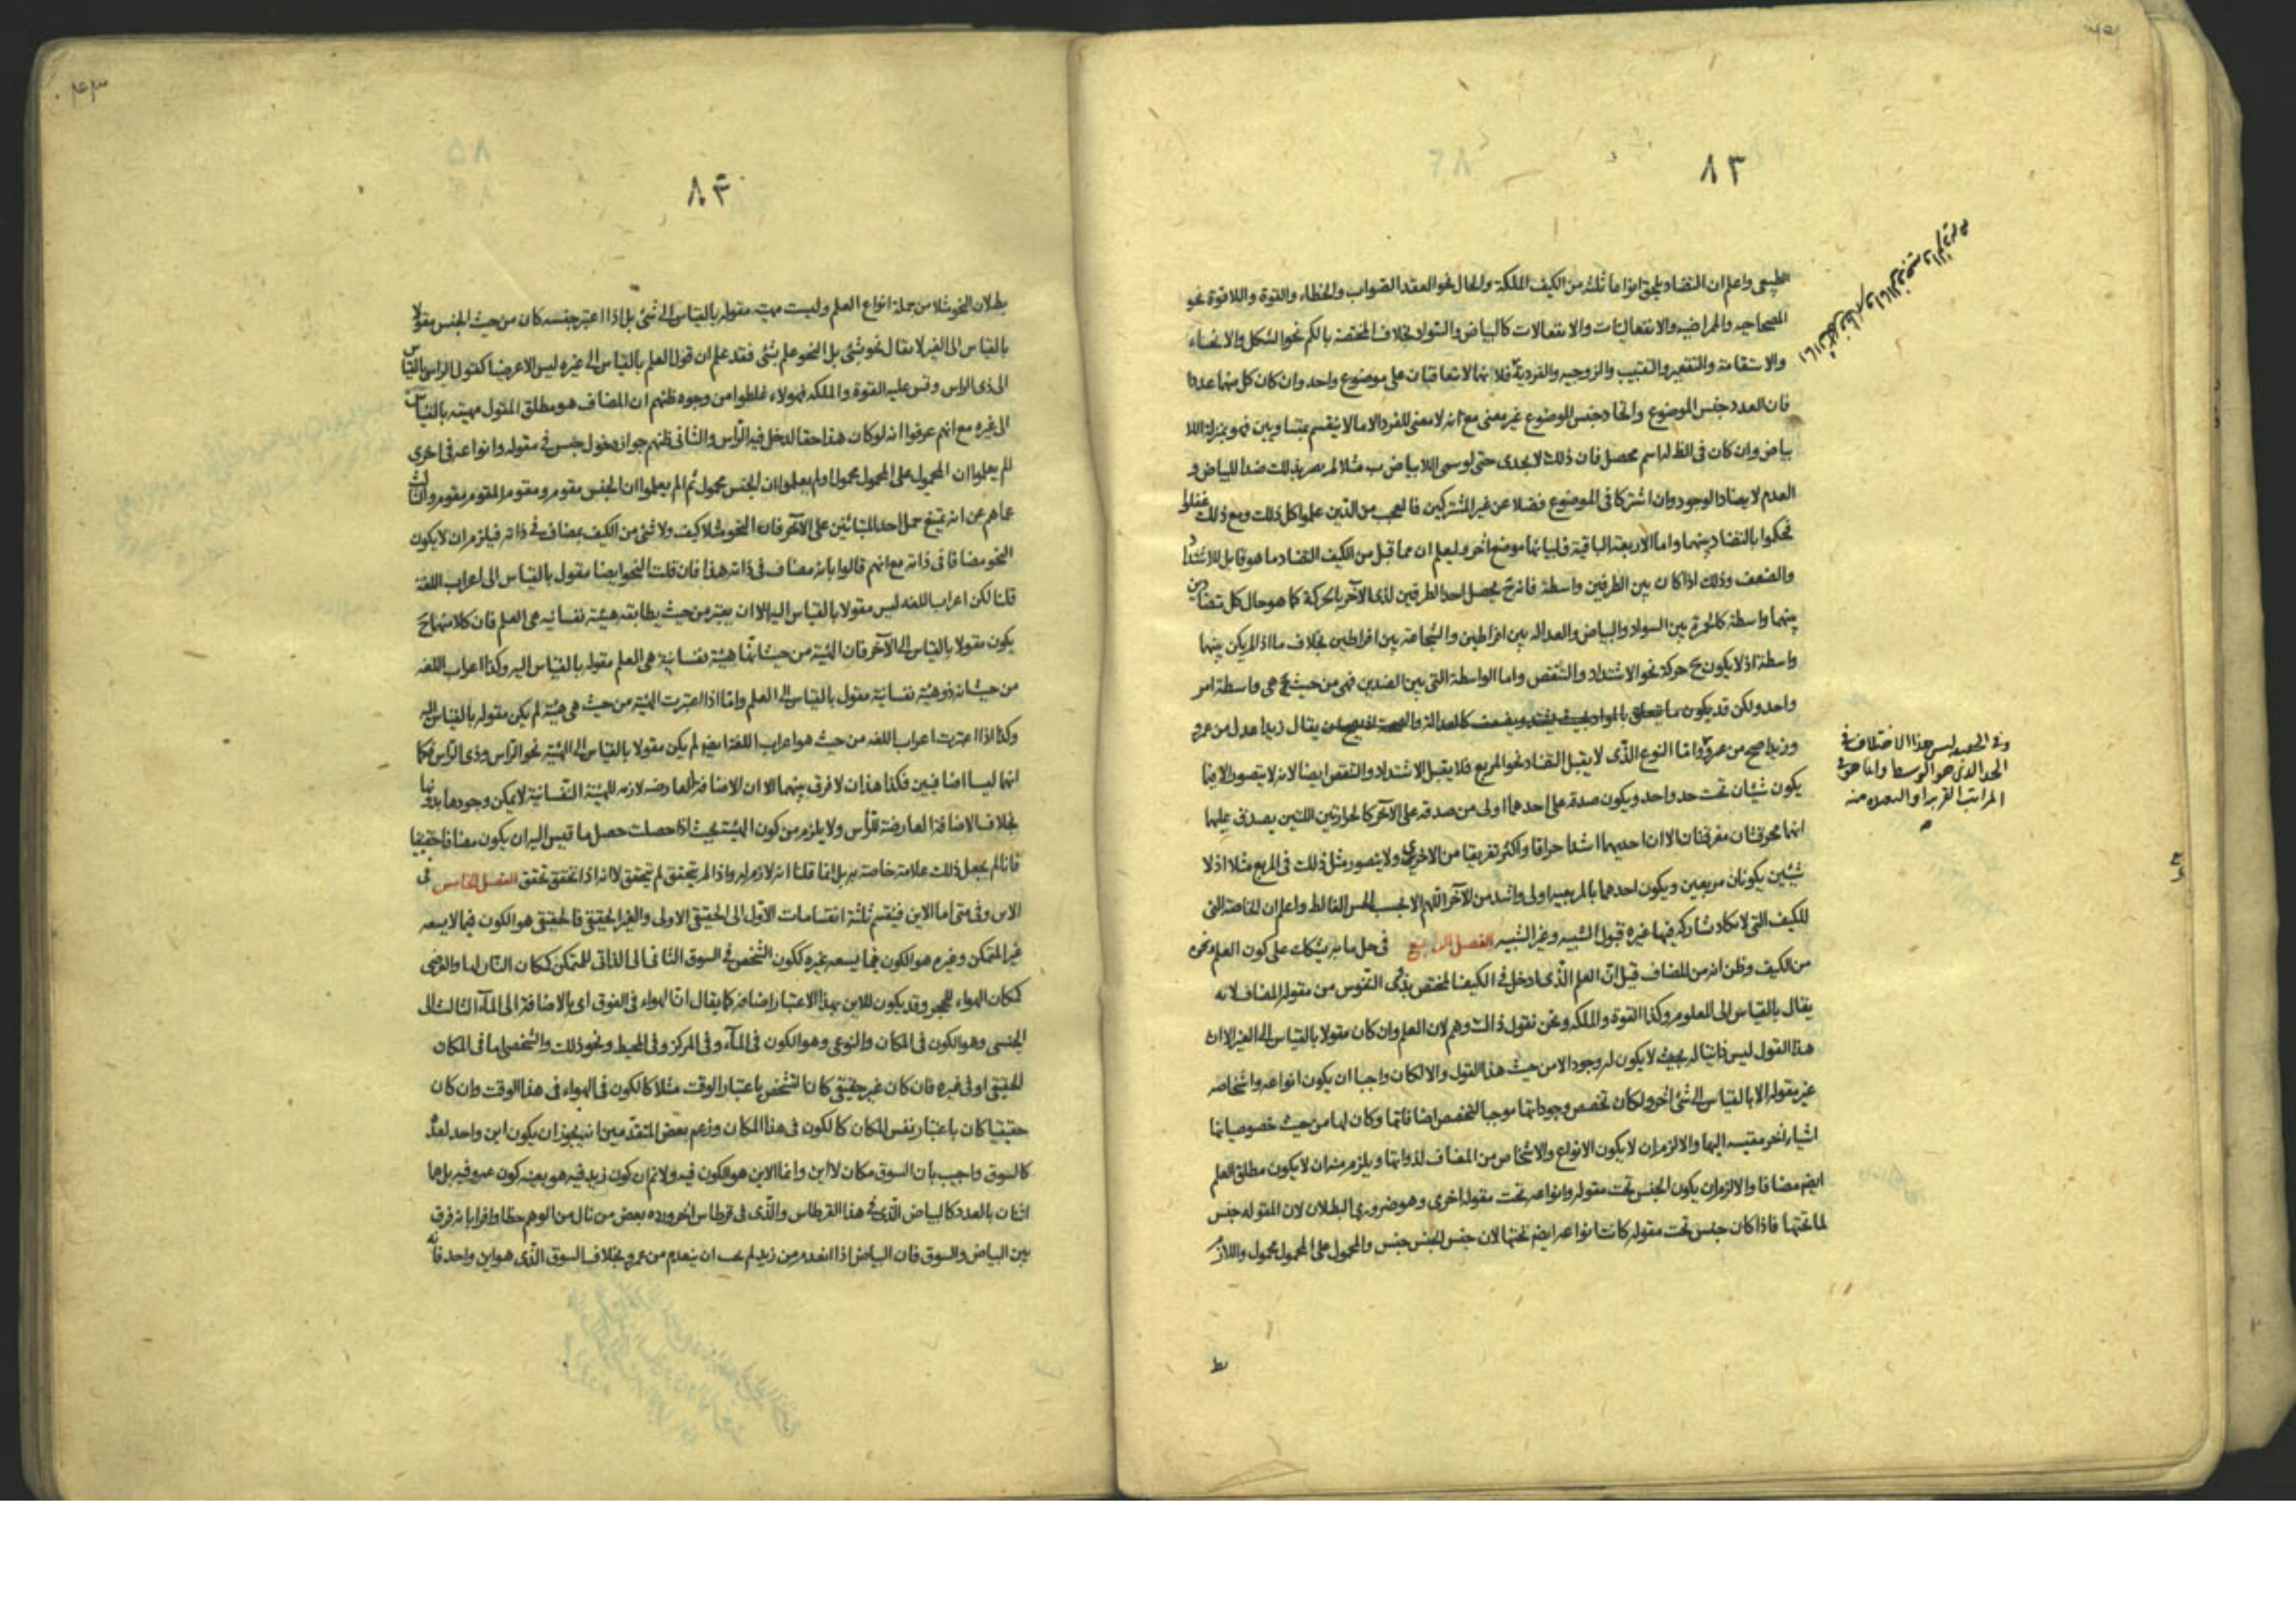 ٨٢
الطبيعى واعلم ان التضاد يلحق انواعا ثلثه من الكيف الملكة والحال نحو العقد الصواب والخطاء والقوة واللاقوة نحو
المصحاحيه والممراضيه والانفعاليات والانفعالات كالبياض والسواد بخلاف المختصة بالكم نحو الشكل والانحناء
والاستقامة والتقعير والتقبيب والزوجيه والفردية فلانهما لا تتعاقبان على موضوع واحد وان كان كل منهما عددا
فان العدد جنس الموضوع واتحاد جنس الموضوع غير معنى مع انه لا معنى للفرد الا ما لا ينقسم بمتساويين فهو بمنزلة اللا
بياض وان كان فى الظ له اسم محصل فان ذلك لا يجدى حتى لو سمى اللابياض ب مثلا لم يصر بذلك ضدا للبياض و
العدم لا يضاد الوجود وان اشتركا فى الموضوع فضلا عن غير المشتركين فالعجب من الذين علموا كل ذلك ومع ذلك غفلوا
فحكموا بالتضاد بينهما واما الاربعة الباقية فلبيانها موضع اخر وليعلم ان مما قبل من الكيف التضاد ما هو قابل للاشتداد
والضعف وذلك اذا كان بين الطرفين واسطة فانه ح يحصل احد الطرفين لذى الآخر بالحركة كما هو حال كل متضادين
بينهما واسطة كالحمرة بين السواد والبياض والعدالة بين افراطين والشجاعة بين افراطين بخلاف ما اذا لم يكن بينهما
واسطة اذ لا يكون ح حركة نحو الاشتداد والتنقص واما الواسطة التى بين الضدين فهى من حيث هى واسطة امر
واحد ولكن قد يكون مما يتعلق بالمواد بحيث يشتد ويضعف كالعدالة والصحة يقال زيد اعدل من عمرو
وزيد اصح من عمرو واما النوع الذى لا يقبل التضاد نحو المربع فلا يقبل الاشتداد والتنقص ايضا لانه لا يتصور الا فيما
يكون شيئان تحت حد واحد ويكون صدقه على احدهما اولى من صدقه على الآخر كالحرارتين اللتين يصدق عليهما
انهما محرقتان مفرقتان الا ان احديهما اشد احراقا واكثر تفريقا من الاخرى ولا يتصور مثل ذلك فى المربع مثلا اذ لا
شيئين يكونان مربعين ويكون احدهما بالمربعيه اولى واشد من الآخر اللهم الا بحسب الحس الغالط واعلم ان الخاصة التى
للكيف التى لا تكاد تشاركه فيها غيره قبول الشبيه وغير الشبيه الفصل الرابع فى حل ما به يشكك على كون العلم ونحوه
من الكيف وظن انه من المضاف قيل ان العلم الذى ادخل فى الكيف المختص بذوى النفوس من مقولة المضاف لانه
يقال بالقياس الى المعلوم وكذا القوة والملكه ونحن نقول ذلك وهم لان العلم وان كان مقولا بالقياس الى الغير الا ان
هذا القول ليس ذاتيا له بحيث لا يكون له وجود الا من حيث هذا القول والا لكان واجبا ان يكون انواعه واشخاصه
غير مقوله الا بالقياس الى شئ اخر ولكان تخصص وجوداتها موجبا لتخصص اضافاتها وكان لها من حيث خصوصياتها
اشياء اخر مقيسه اليها والا لزم ان لا يكون الانواع والاشخاص من المضاف لذواتها ويلزم منه ان لا يكون مطلق العلم
ايضم مضافا والا لزم ان يكون الجنس تحت مقوله وانواعه تحت مقوله اخرى وهو ضرورى البطلان لان المقوله جنس
لما تحتها فاذا كان جنس تحت مقوله كانت انواعه ايضم تحتها لان جنس الجنس جنس والمحمول على المحمول محمول واللازم
وفى الحقيقة ليس هذا الاختلاف فى
الحد الذى هو الوسط وانما هو فى
المراتب القريبة او البعيدة منه
٨٣
بطلان النحو مثلا من جملة انواع العلم وليست مهيته مقوله بالقياس الى شئ بل اذا اعتبر جنسه كان من حيث الجنس مقولا
بالقياس الى الغير لا يقال نحو شئ بل النحو علم بشئ فقد علم ان قول العلم بالقياس الى غيره ليس الا عرضيا كقول الراس بالقياس
الى ذى الراس وقس عليه القوة والملكه فهولاء غلطوا من وجوه ظنهم ان المضاف هو مطلق المقول مهيته بالقياس
الى غيره مع انهم عرفوا انه لو كان هذا حقا لدخل فيه الراس والثانى ظنهم جواز دخول جنس فى مقوله وانواعه فى اخرى
لم يعلموا ان المحمول على المحمول محمول او لم يعلموا ان الجنس محمول ثم لم يعلموا ان الجنس مقوم ومقوم المقوم مقوم والثالث
عماهم عن انه يمتنع حمل احد المتباينين على الآخر فان النحو مثلا كيف ولا شئ من الكيف بمضاف فى ذاته فيلزم ان لا يكون
النحو مضافا فى ذاته مع انهم قالوا بانه مضاف فى ذاته هذا فان قلت النحو ايضا مقول بالقياس الى اعراب اللغة
قلنا لكن اعراب اللغه ليس مقولا بالقياس اليه الا ان يعتبر من حيث يطابقه هيئة نفسانيه هى العلم فان كلا منهما ح
يكون مقولا بالقياس الى الآخر فان الهيئة من حيث انها هيئة نفسانية هى العلم مقوله بالقياس اليه وكذا اعراب اللغه
من حيث انه ذو هيئة نفسانية مقول بالقياس الى العلم واما اذا اعتبرت الهيئة من حيث هى هيئة لم يكن مقوله بالقياس اليه
وكذا اذا اعتبرت اعراب اللغه من حيث هو اعراب اللغة ايضم لم يكن مقولا بالقياس الى الهيئة نحو الراس وذى الراس فكما
انهما ليسا اضافيين فكذا هذان لا فرق بينهما الا ان الاضافة العارضه لازمه للهيئة النفسانية لا يمكن وجودها بدونها
بخلاف الاضافة العارضة للرأس ولا يلزم من كون الهيئة بحيث اذا حصلت حصل ما قيس اليه ان يكون مضافا حقيقيا
فانا لم نجعل ذلك علامة خاصة به بل انما قلنا انه لازم له واذا لم يتحقق لم يتحقق لا انه اذا تحقق تحقق الفصل الخامس فى
الاين وفى متى اما الاين فينقسم ثلثة انقسامات الاول الى الحقيقى الاولى والغير الحقيقى فالحقيقى هو الكون فيما لا يسعه
غير المتمكن وغيره هو الكون فيما يسعه غيره ككون الشخص فى السوق الثانى الى الذاتى للمتمكن كمكان النار لها والعرضى
كمكان الهواء للحجر وقد يكون للاين بهذا الاعتبار اضافة كما يقال ان الهواء فى الفوق اى بالاضافة الى الماء الثالث الى
الجنسى وهو الكون فى المكان والنوعى وهو الكون فى الماء وفى المركز وفى المحيط ونحو ذلك والشخصى اما فى المكان
الحقيقى او فى غيره فان كان غير حقيقى كان التشخص باعتبار الوقت مثلا كالكون فى الهواء فى هذا الوقت وان كان
حقيقيا كان باعتبار نفس المكان كالكون فى هذا المكان وزعم بعض المتقدمين انه يجوز ان يكون اين واحد لعدة
كالسوق واجيب بان السوق مكان لا اين وانما الاين هو الكون فيه ولا نم ان كون زيد فيه هو بعينه كون عمرو فيه بل هما
اثنان بالعدد كالبياض الذى فى هذا القرطاس والذى فى قرطاس اخر ورده بعض من نال من الوهم حظا وافرا بانه فرق
بين البياض والسوق فان البياض اذا انعدم من زيد لم يجب ان ينعدم من عمرو بخلاف السوق الذى هو اين واحد فانه